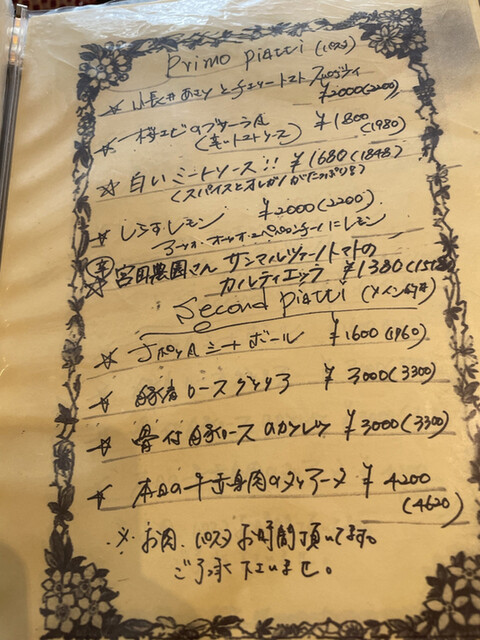 Primo piatti (パスタ)
☆ 小長井あさりとチェリートマト スパゲッティ
¥2000(2200)
☆ 桜エビのプッターラ風 ¥1800
(辛トマトソース) (1980)
☆ 白いミートソース!! ¥1680(1848)
(スパイスとオレガノがたっぷり)
☆ しらすレモン ¥2000(2200)
アーリオ・オーリオ・ペペロンチーノにレモン
辛 宮田農園さん サンマルツァーノトマトの
カルティエッラ ¥1380(1518)
Second piatti (メイン料理)
☆ ナポリ風ミートボール ¥1600(1760)
☆ 豚肩ロースグリリア ¥3000(3300)
☆ 骨付豚ロースのカツレツ ¥3000(3300)
☆ 本日の牛赤身肉のタリアータ ¥4200
(4620)
※ お肉、パスタお時間頂いてます。
ご了承下さいませ。